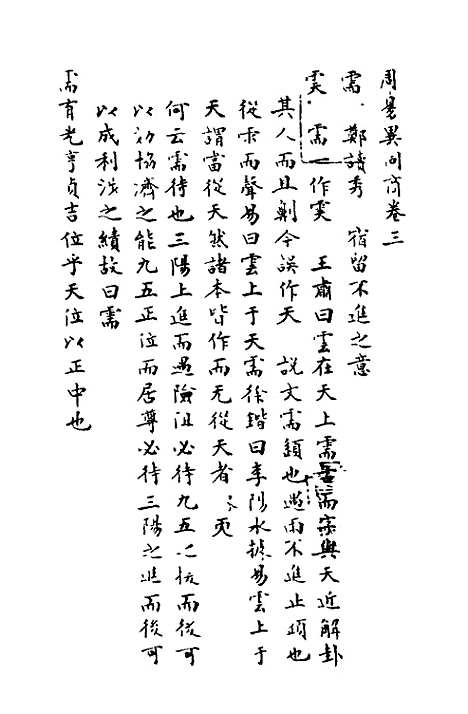 周易異同商卷三
需 鄭讀秀 宿留不進之意
需一作䨙 王肅曰雲在天上需 而 與天近解卦
其人而且劓今誤作天 說文需䫣也遇雨不進止䫣也
從雨而聲易曰雲上于天需徐鍇曰李陽冰據易雲上于
天謂當從天然諸本皆作而无從天者
何云需待也三陽上進而遇險沮必待九五之援而後可
以効協濟之能九五正位而居尊必待三陽之進而後可
以成利涉之績故曰需
需有孚光亨貞吉位乎天位以正中也